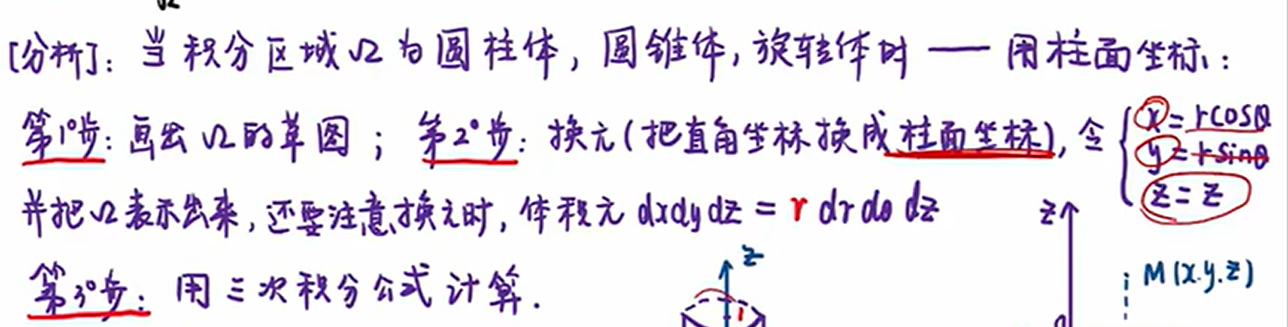 [分析]: 当积分区域Ω为圆柱体, 圆锥体, 旋转体时 —— 用柱面坐标:
第1°步: 画出Ω的草图; 第2°步: 换元(把直角坐标换成柱面坐标), 令 { x = rcosθ
y = rsinθ
z = z
并把Ω表示出来, 还要注意换元时, 体积元 dxdydz = r dr dθ dz
第3°步: 用三次积分公式计算.
z
z
M(x.y.z)
1